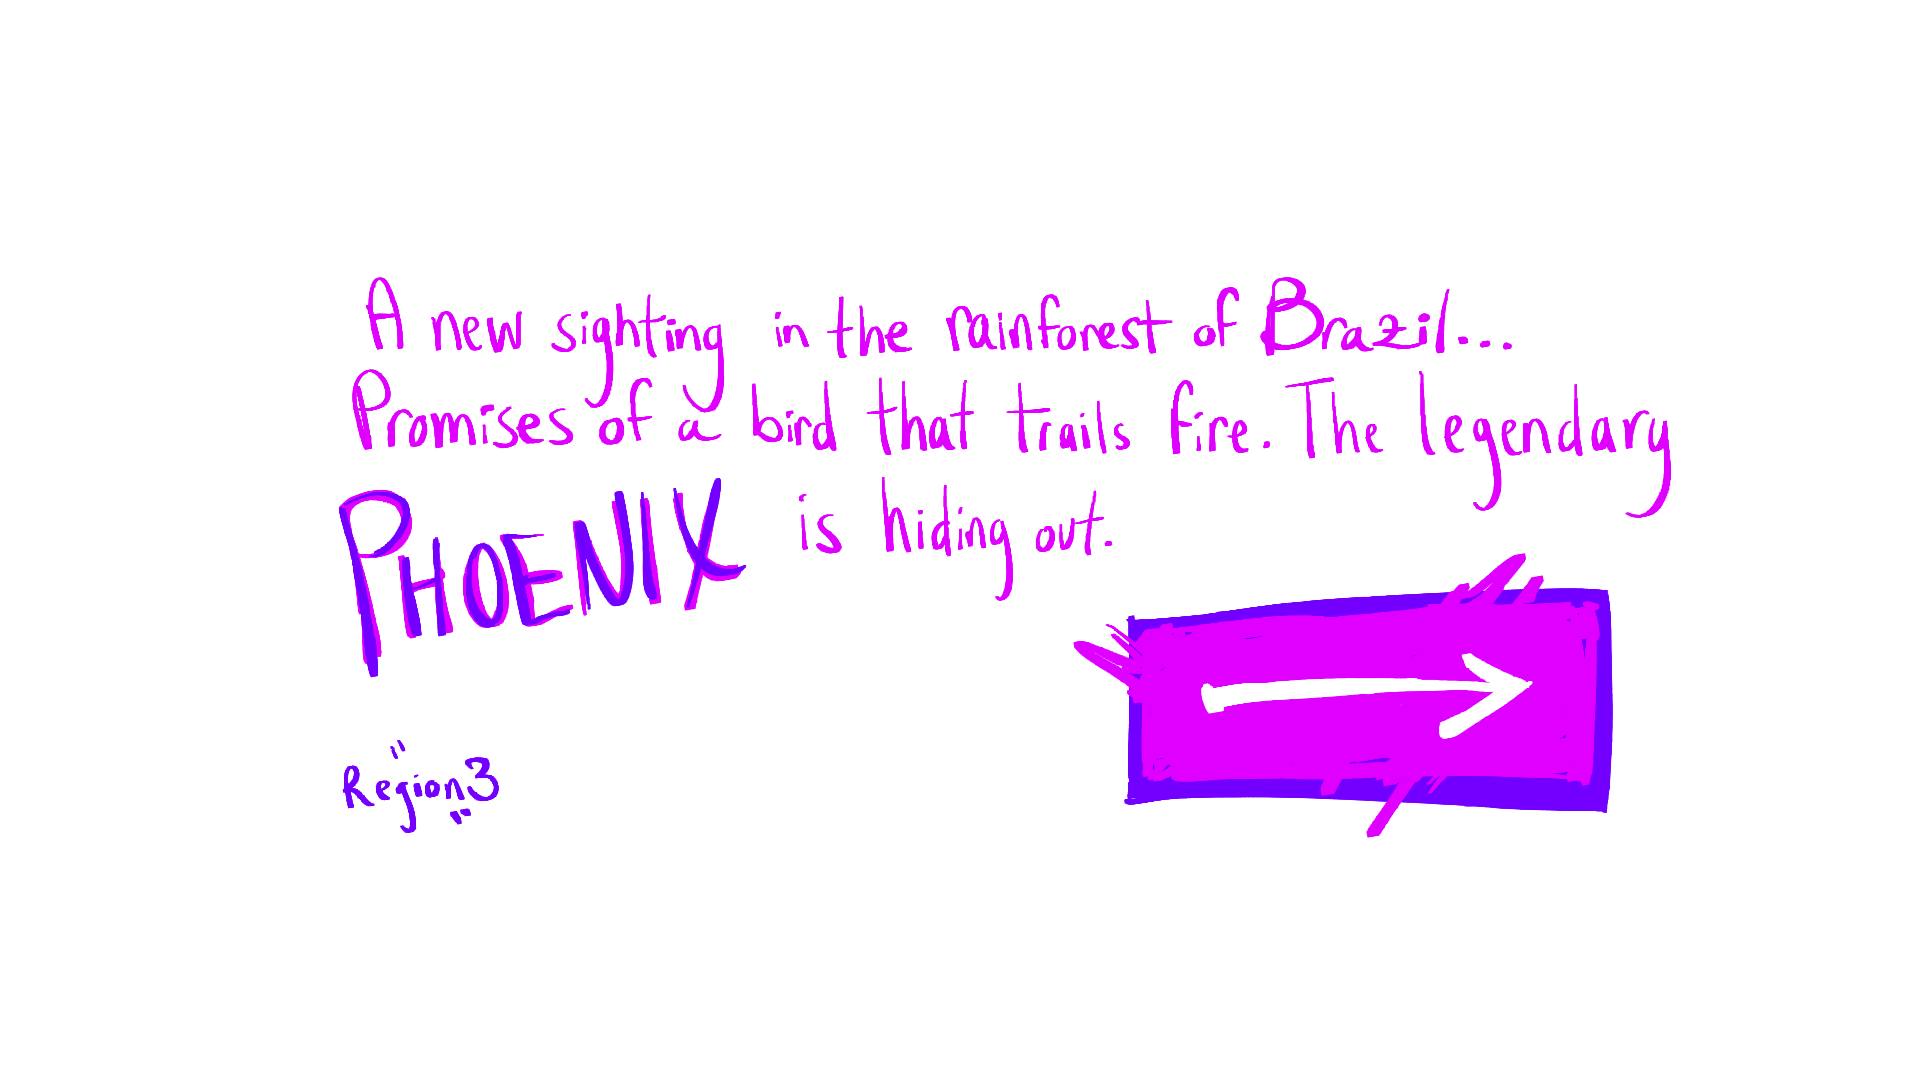 A new sighting in the rainforest of Brazil...
Promises of a bird that trails fire. The legendary
PHOENIX is hiding out.
Region 3